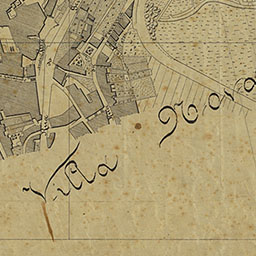 Villa Nova